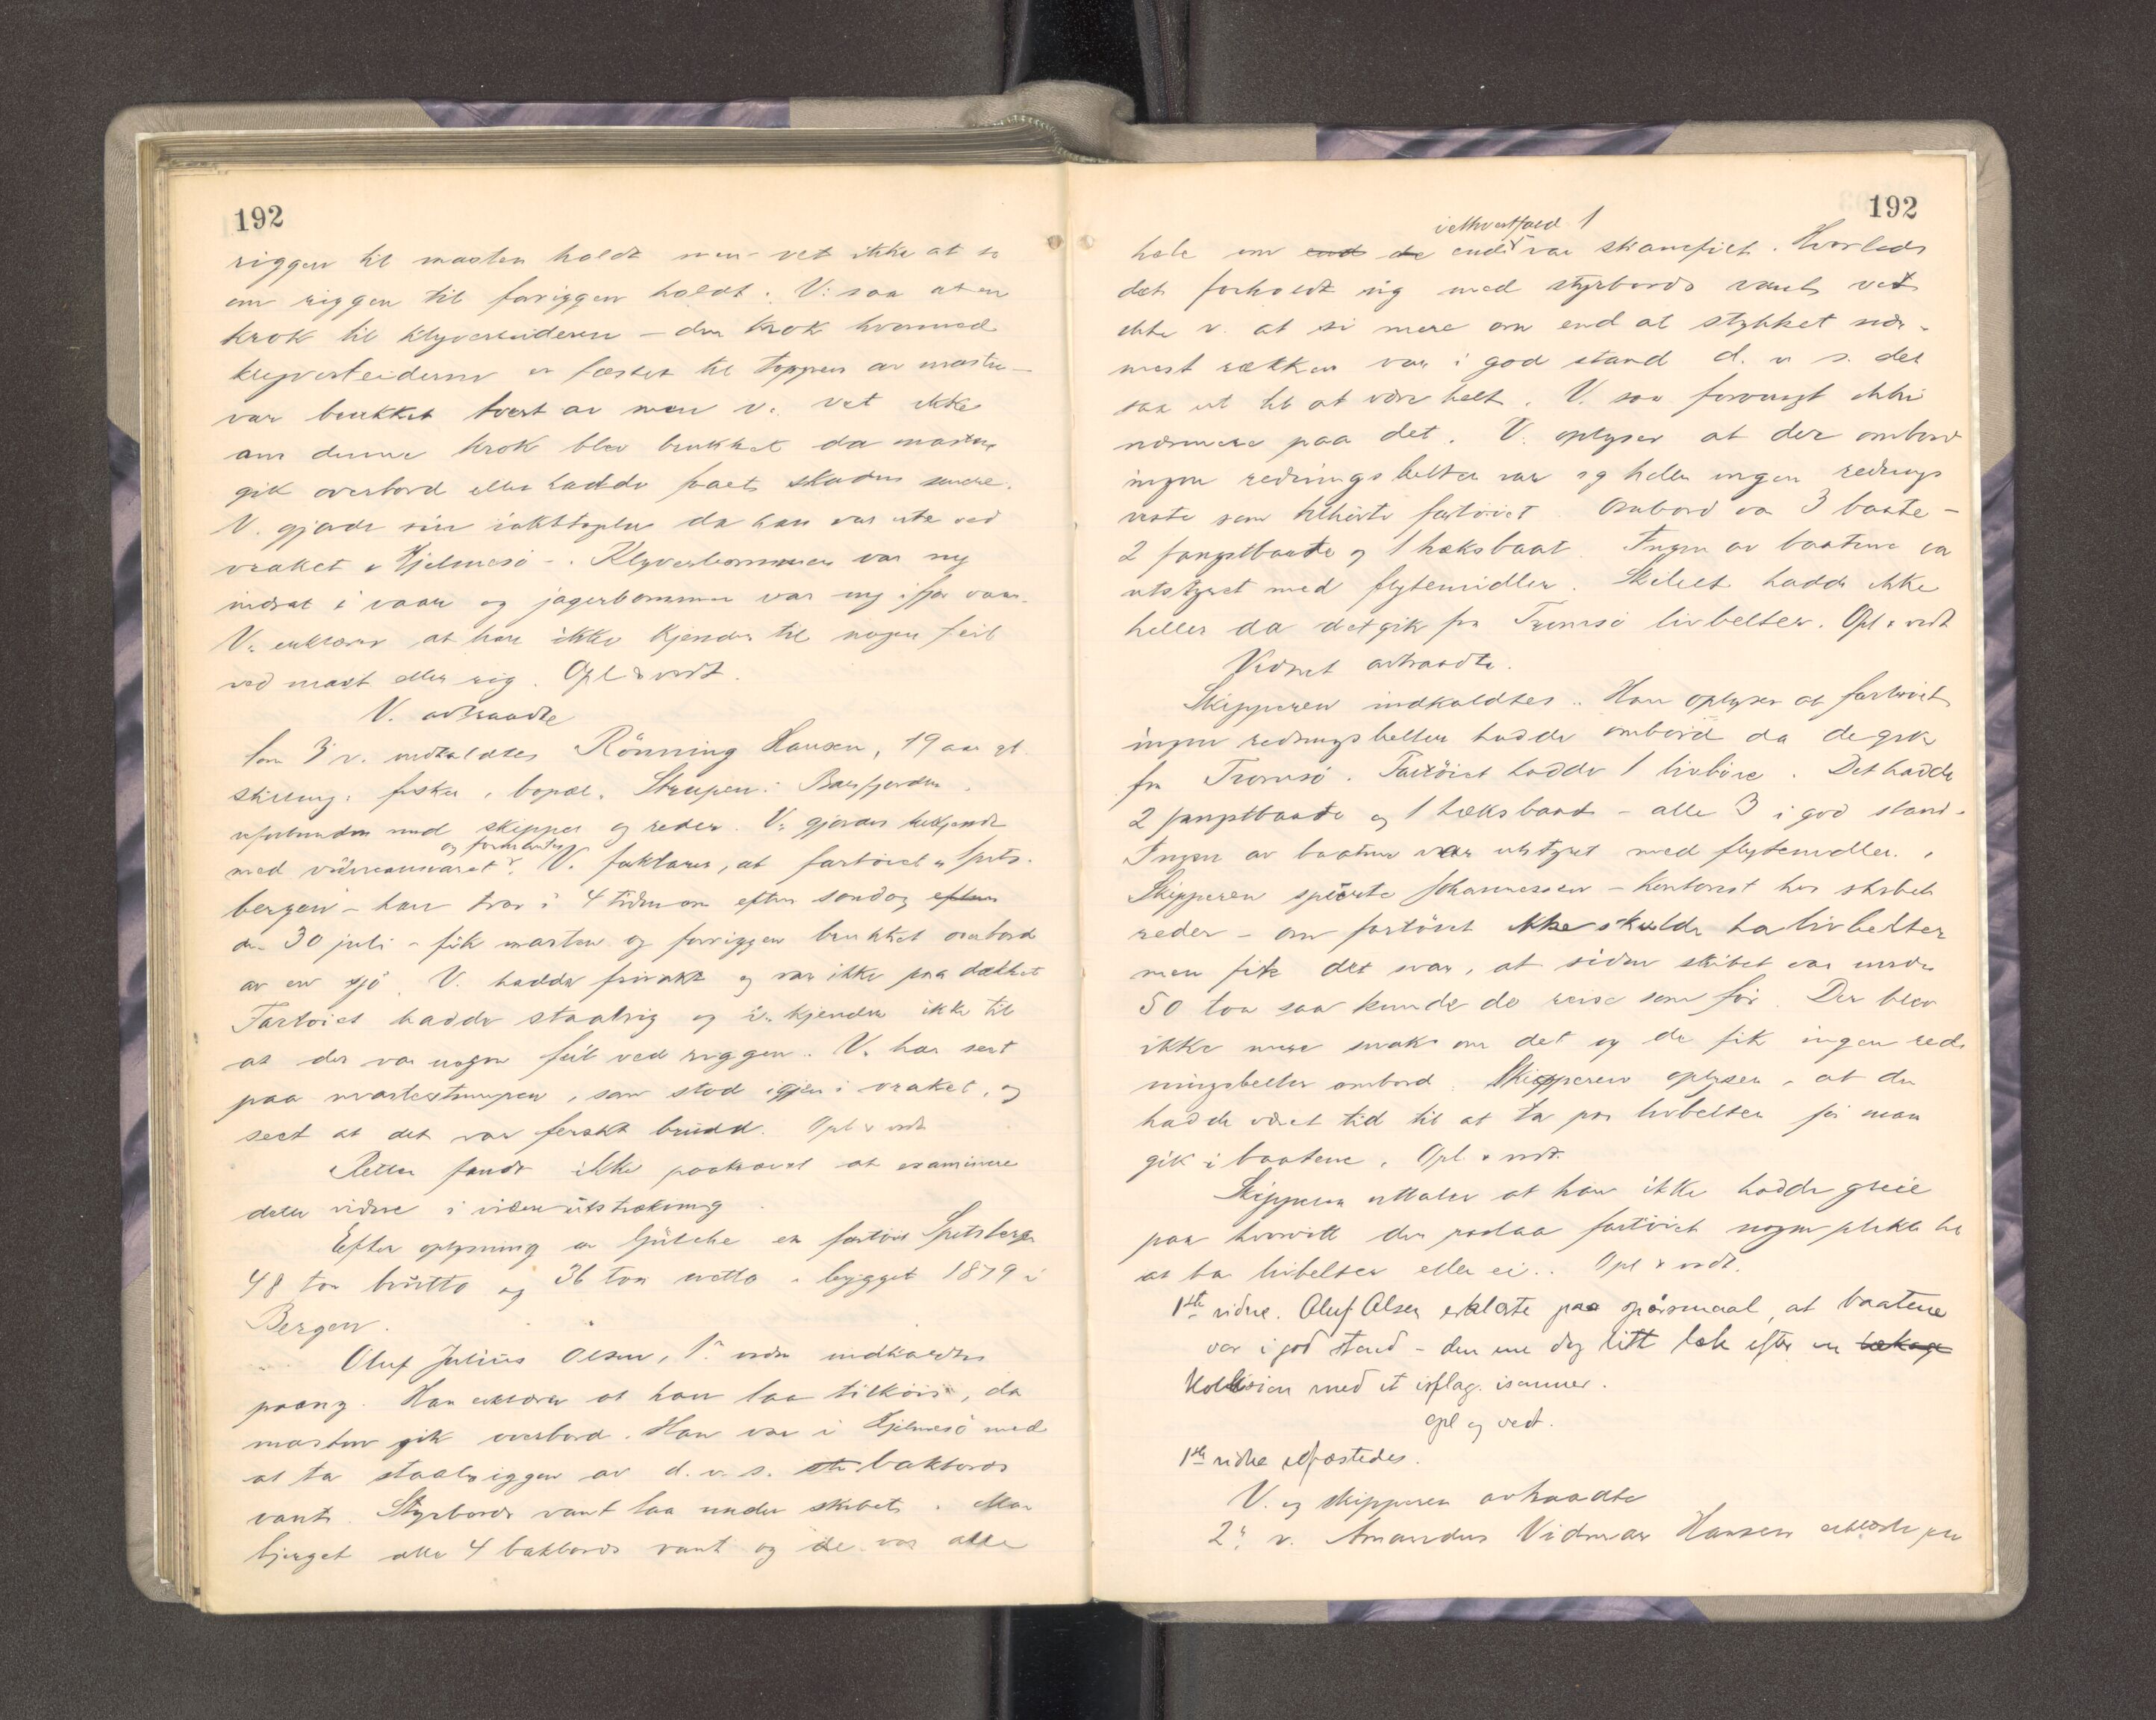 192
riggen til masten holdt men vet ikke at si
om riggen til foriggen holdt. V: saa at en
krok til klyverleideren – den krok hvormed
klyverleideren er fæstet til toppen av masten –
var brukket tvert av men v. vet ikke
om denne krok blev brukket da masten
gik overbord eller hadde faaet skaden senere.
V. gjorde sine iakttagelser da han var ute ved
vraket i Hjelmesö –. Klyverbommen var ny
indsat i vaar og jagerbommen var ny ifjor vaar.
V. erklærer at han ikke kjender til nogen feil
ved mast eller rig. Opl & vedt.
V. avtraadte
Som 3 v. indkaldtes Rönning Hansen, 19 aar gl.
stilling: fisker, bopæl. Straupen i Balsfjorden.
uforbunden med skipper og reder. V. gjordes bekjendt
og formantes
med vidneansvaret. V. forklarer, at fartöiet "Spits-
bergen – han tror i 4 tiden om efterm söndag efterm
den 30 juli – fik masten og forriggen brukket overbord
av en sjö. V. hadde frivakt og var ikke paa dækket
Fartöiet hadde staalrig og v. kjender ikke til
at der var nogen feil ved riggen. V. har seet
paa mastestumpen, som stod igjen i vraket, og
seet at det var ferskt brudd. Opl & vedt
Retten fandt ikke paakrævet at examinere
dette vidne i videre utstrækning
Efter oplysning av Gjætche er fartöiet Spitsbergen
48 ton brutto og 36 ton netto – bygget 1879 i
Bergen.
Oluf Julius Olsen, 1. vidne indkaldtes
paany. Han erklærer at han laa tilköis, da
masten gik overbord. Han var i Hjelmesö med
at ta staalriggen av d. v. s. bakbords
vant. Styrbords vant laa under skibet. Man
bjerget alle 4 bakbords vant og de var alle
192
ialhvertfald 1
hele om end de ende var skamfilt. Hvorledes
det forholdt sig med styrbords vant vet
ikke v. at si mere om end at stykket nær-
mest rækken var i god stand d. v s. det
saa ut til at være helt. V. saa forövrigt ikke
nærmere paa det. V. oplyser at der ombord
ingen redningsbelter var og heller ingen rednings
veste som tilhörte fartöiet. Ombord var 3 baate –
2 fangstbaate og 1 hæksbaat. Ingen av baatene var
utstyret med flytemidler. Skibet hadde ikke
heller da det gik fra Tromsö livbelter. Opl & vedt
Vidnet avtraadte.
Skipperen indkaldtes. Han oplyser at fartöiet
ingen redningsbelter hadde ombord da de gik
fra Tromsö. Fartöiet hadde 1 livböie. Det hadde
2 fangstbaate og 1 hæksbaat – alle 3 i god stand.
Ingen av baatene var utstyret med flytemidler.
Skipperen spurte Johannessen – kontorist hos skibets
reder – om fartöiet ikke skulde ha livbelter
men fik det svar, at siden skibet var under
50 ton saa kunde de reise som för. Der blev
ikke mere snak om det og de fik ingen red-
ningsbelter ombord. Skipperen oplyser, at der
hadde været tid til at ta paa livbelter för man
gik i baatene. Opl. & vedt.
Skipperen uttaler at han ikke hadde greie
paa hvorvidt der paalaa fartöiet nogen plikt til
at ha livbelter eller ei. Opl & vedt.
1ste vidne. Oluf Olsen erklærte paa spörsmaal, at baatene
var i god stand – den ene dog litt læk efter en lækage
Kollision med et isflag. isommer.
Opl og vedt.
1ste vidne edfæstedes.
V. og skipperen avtraadte
2. v. Amandus Vidmar Hansen erklærte paa